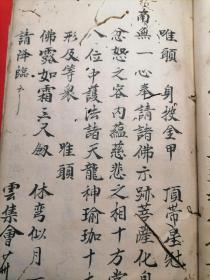 唯願　身披金甲　頂帶星
南無一心奉請諸佛示跡菩薩化身
忿恕之容內蘊慈悲之相十方
八位中護法諸天龍神瑜珈十
形及等衆　唯願
佛露如霜三尺劔　休弯似月一
請降臨　雲集會